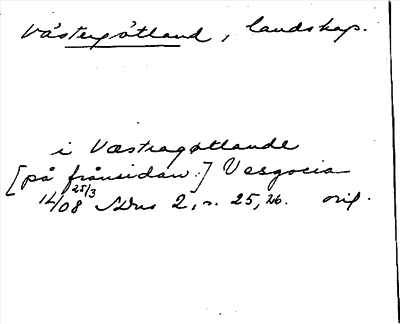 Västergötland, landskap.
i Væstragøtlande
[på frånsidan:] Vesgocia
25/3
14/08 SDns 2, s. 25, 26. orig.